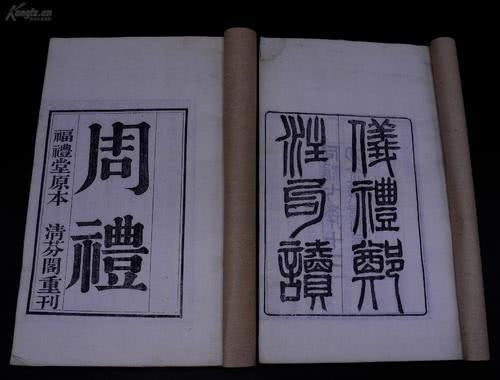 Kongfz.cn
周禮
福禮堂原本 清芬閣重刊
儀禮鄭
注句讀